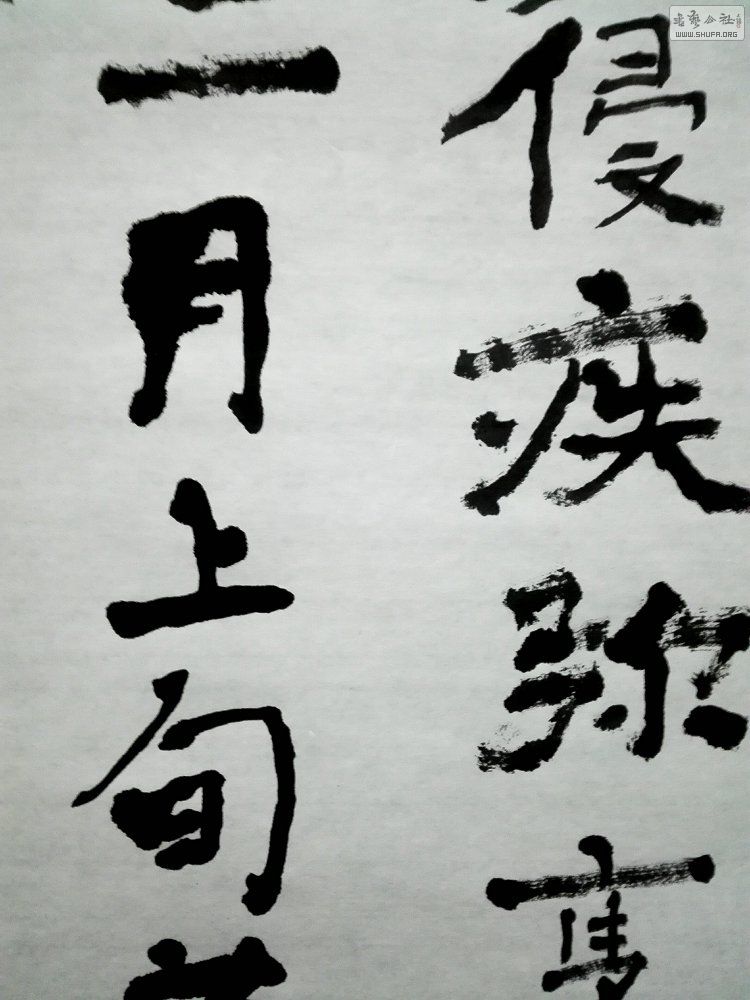 侵疾弥
月上旬
書藝公社
WWW.SHUFA.ORG